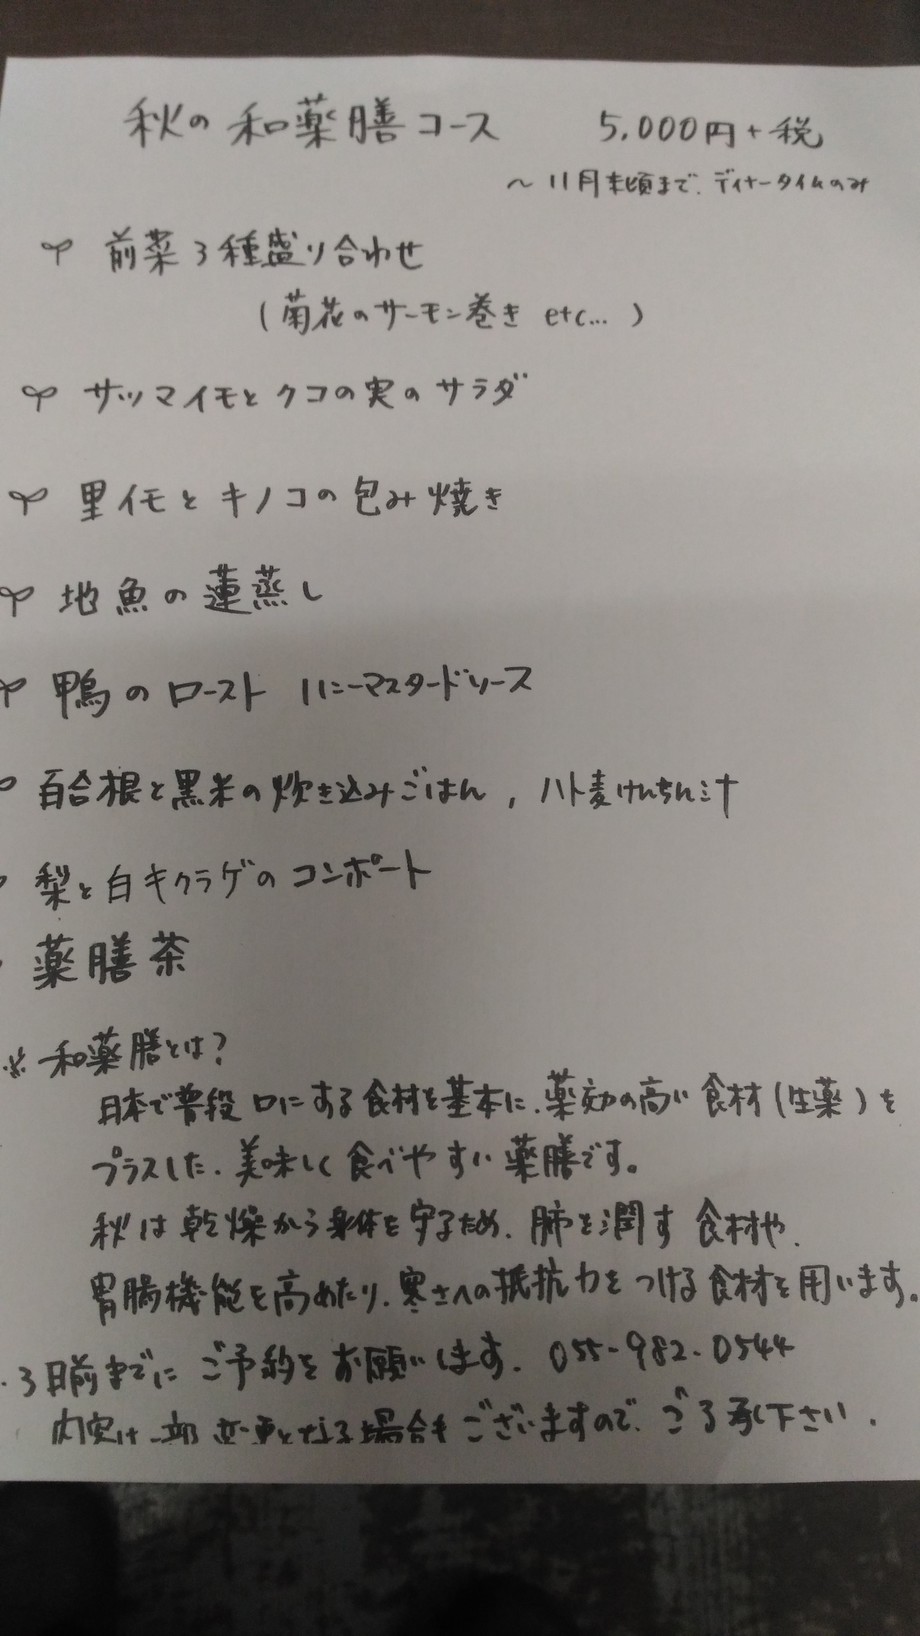 秋の和薬膳コース 5,000円+税
〜11月末頃まで、ディナータイムのみ
前菜3種盛り合わせ
(菊花のサーモン巻き etc...)
サツマイモとクコの実のサラダ
里イモとキノコの包み焼き
地魚の蓮蒸し
鴨のロースト ハニーマスタードソース
百合根と黒米の炊き込みごはん, ハト麦けんちん汁
梨と白キクラゲのコンポート
薬膳茶
※和薬膳とは?
日本で普段口にする食材を基本に、薬効の高い食材(生薬)を
プラスした、美味しく食べやすい薬膳です。
秋は乾燥から身体を守るため、肺を潤す食材や、
胃腸機能を高めたり、寒さへの抵抗力をつける食材を用います。
・3日前までにご予約をお願いします。055-982-0544
内容は一部変更となる場合もございますので、ご了承下さい。